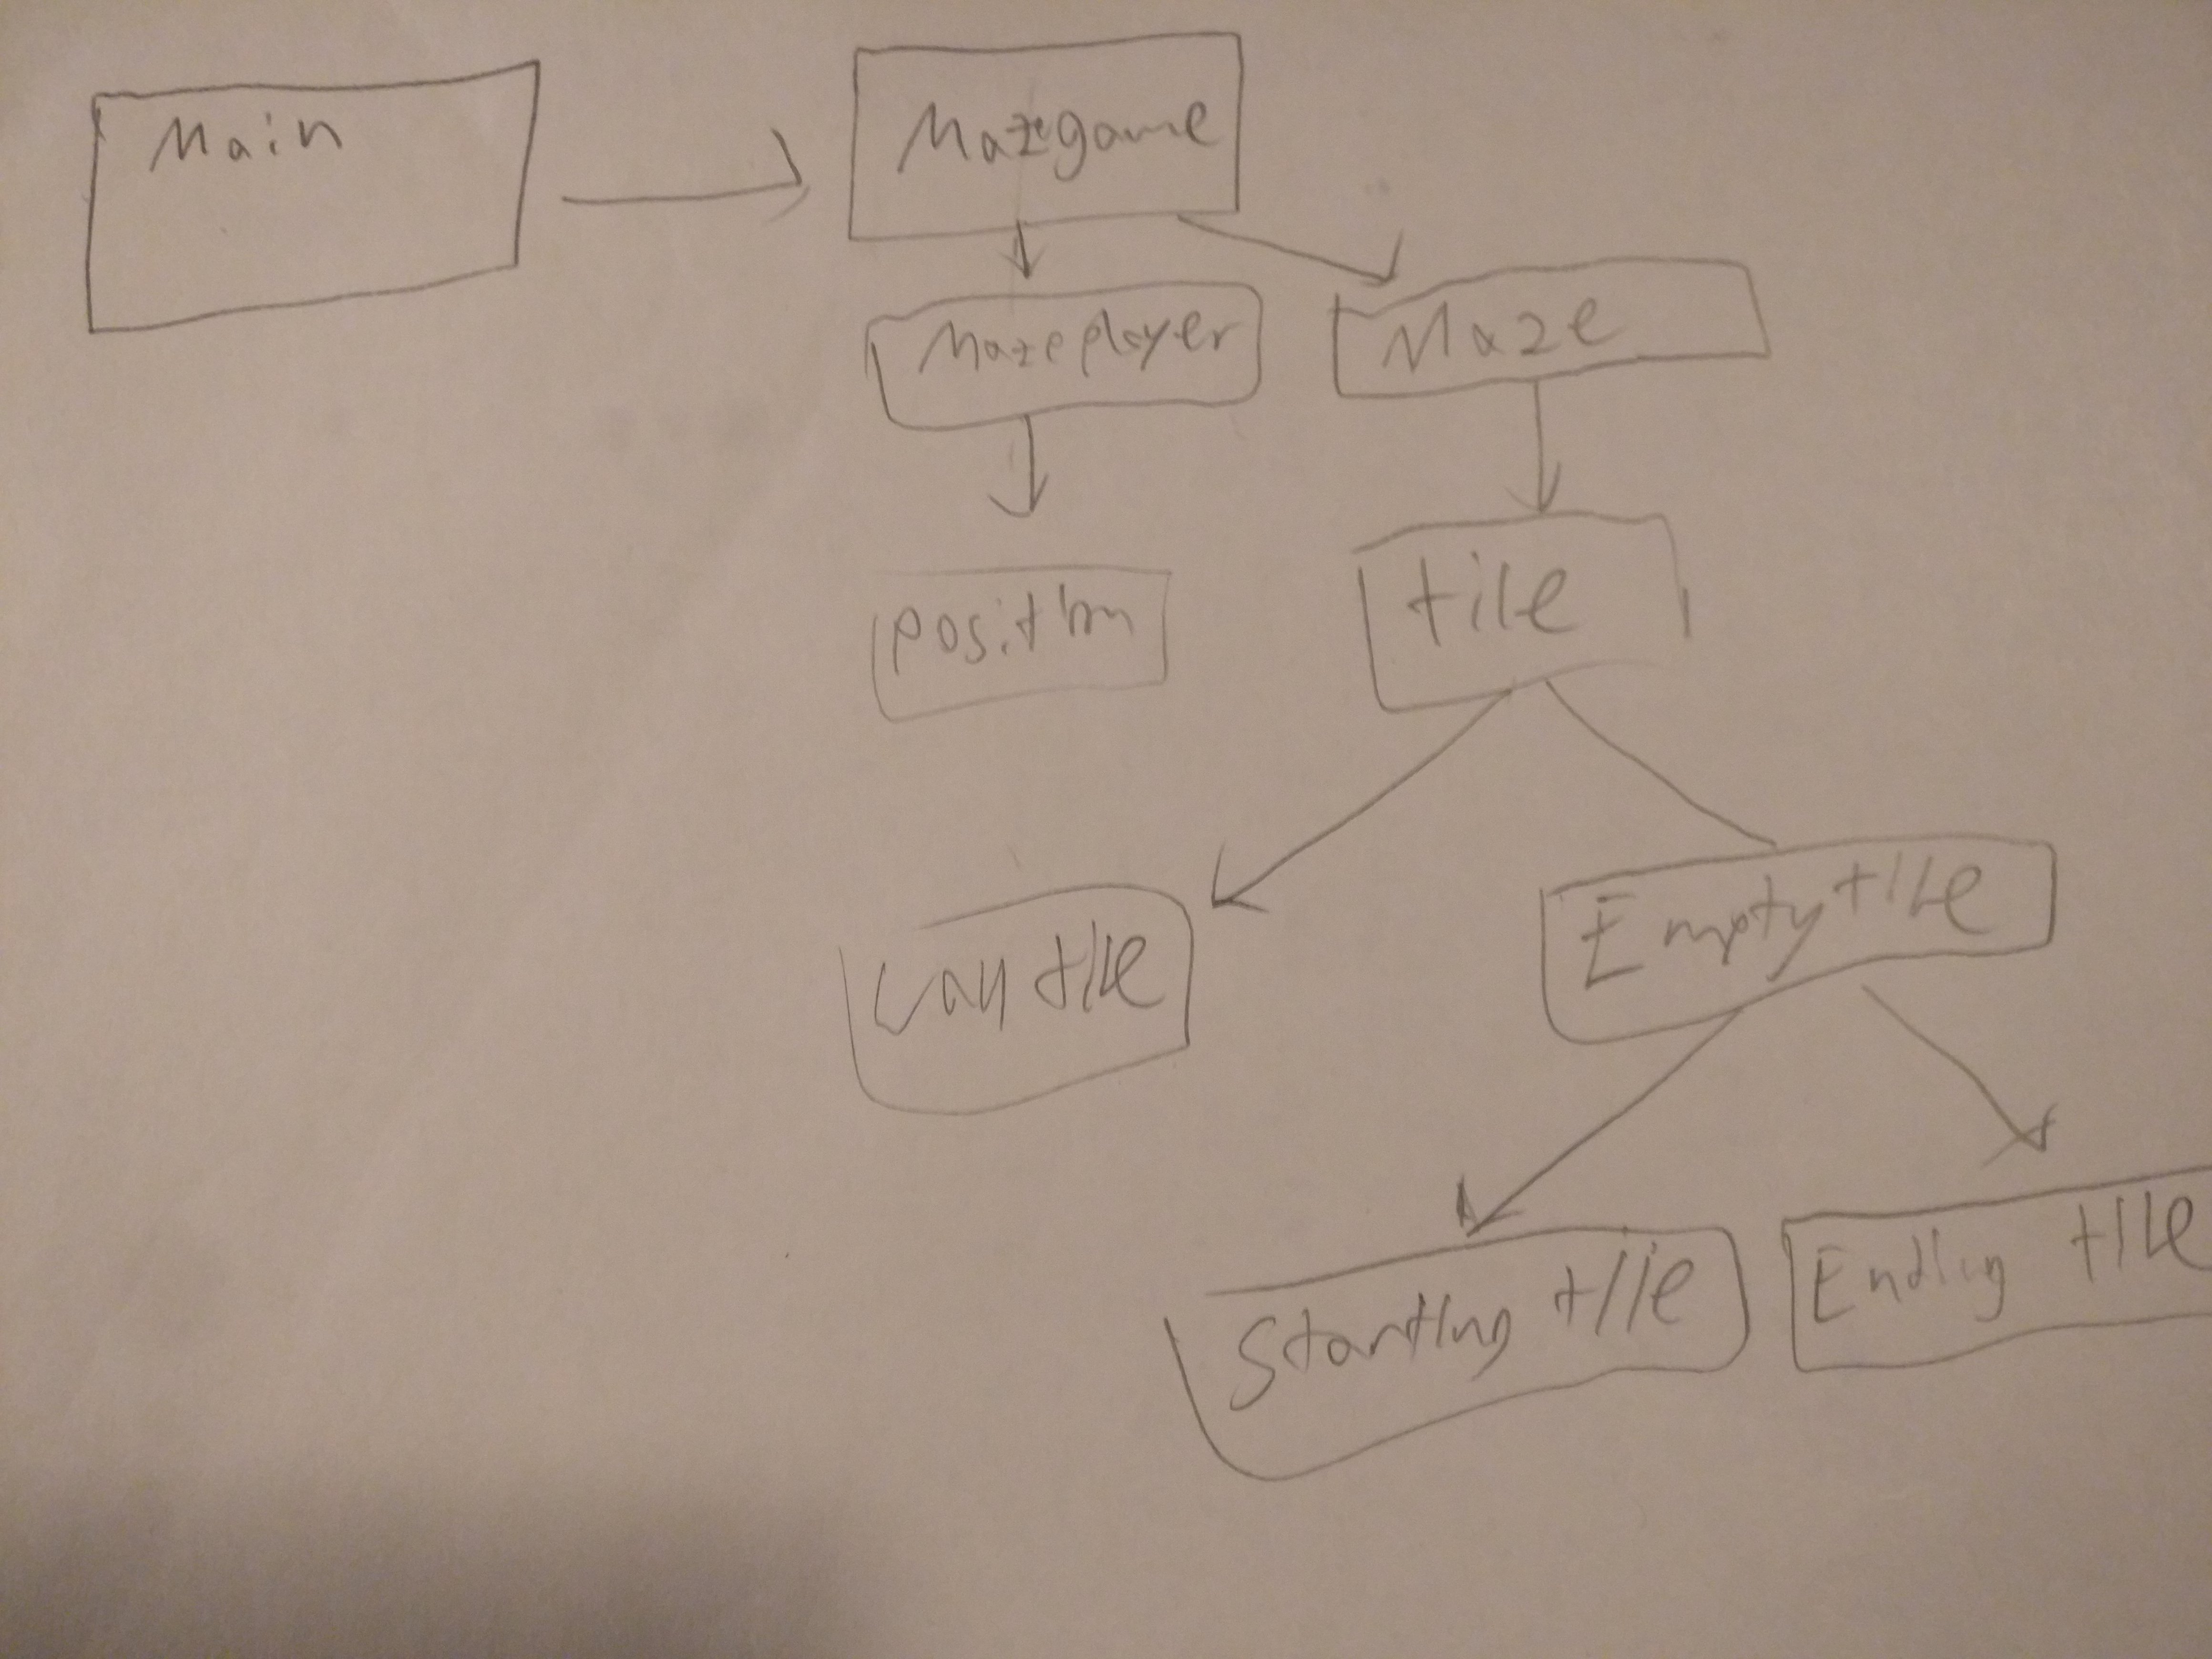 Main
Mazegame
Mazeplayer
Maze
position
tile
Wall tile
Emptytile
Starting tile
Ending tile